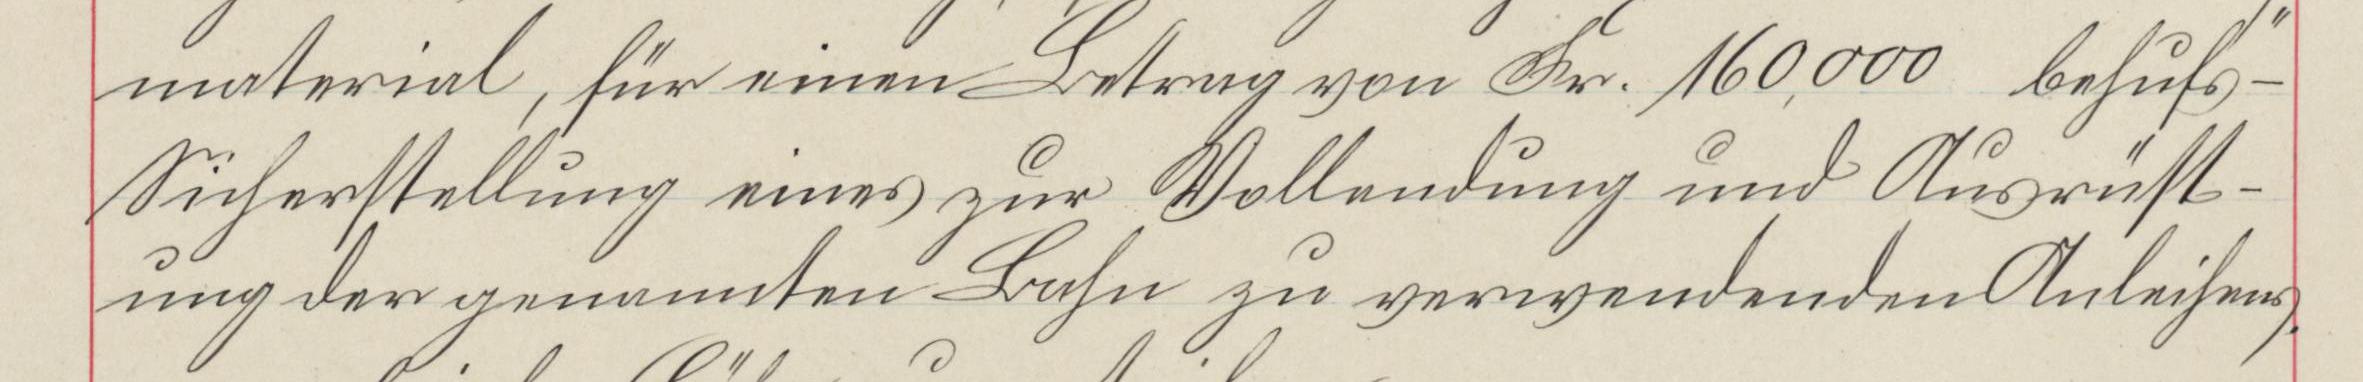 material, für einen Betrag von Fr. 160,000 behufs-
Sicherstellung eines zur Vollendung und Ausrüst-
ung der genannten Bahn zu verwendenden Anleihens,